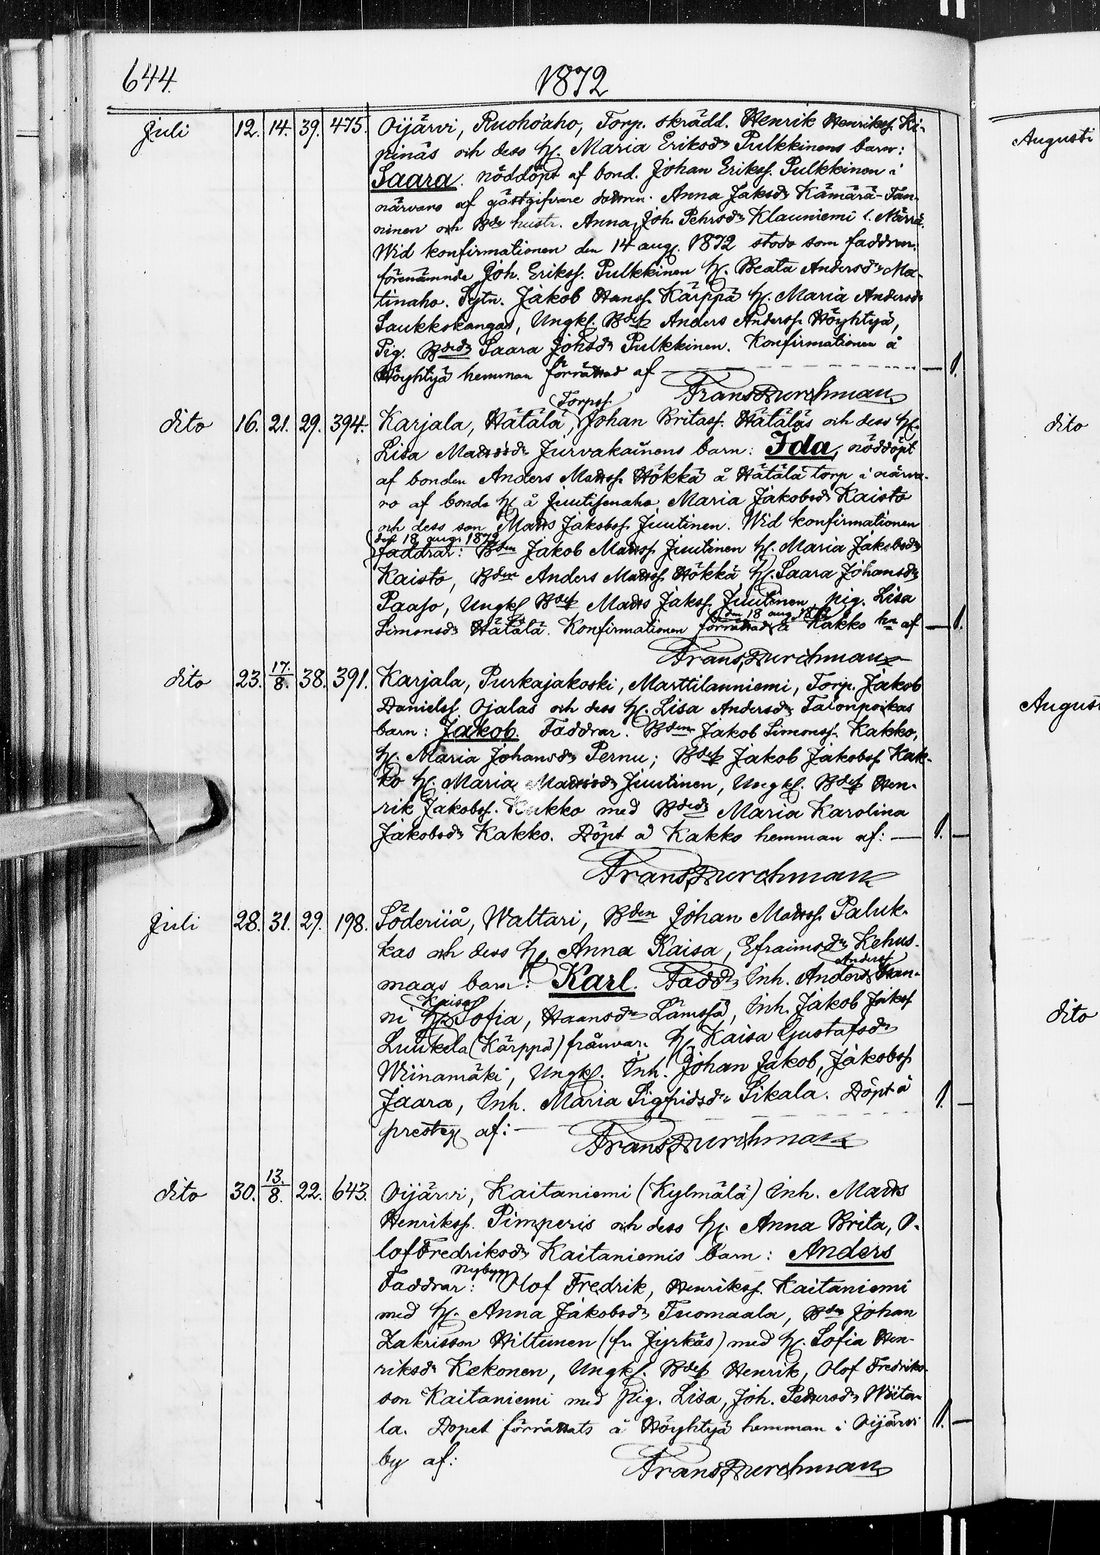 644.
1872
Juli 12. 14. 39. 475. Oijärvi, Ruohoaho, Torp. skrädd. Henrik Henrikss. Ki-
pinäs och dess H. Maria Eriksdr Pulkkinens barn:
Saara. nöddöpt af bond. Johan Erikss. Pulkkinen i
närvaro af gästgifvare Anna Jaksdr Kämärä-Tan-
ninen och Bde hustr. Anna, Joh. Pehrsdr Klauniemi
Wid konfirmationen den 14 aug. 1872 stodo som faddrar:
förenämnde Joh. Erikss. Pulkkinen H. Beata Andersdr Ma-
tinaho. Sytn. Jakob Hanss. Kärppä H. Maria Andersdr
Saukkokangas, Ungkl. Bdes. Anders Anderss. Höyhtyä,
Pig. Bdedr Saara Johsdr Pulkkinen. Konfirmationen å
Höyhtyä hemman förrättad af 1.
Frans Durchman
dito 16. 21. 29. 394. Karjala, Hätälä, Torpss. Johan Britass. Hätäläs och dess H.
Lisa Mattsdr Jurvakainens barn: Ida, nöddöpt
af bonden Anders Matts. Hökkä å Hätälä torp i närva-
ro af bonde H. å Juutisenaho, Maria Jakobsdr Kaisto
och dess son Matts Jakobss. Juutinen. Wid konfirmationen
den 18 aug. 1872
faddrar: Bden Jakob Matts. Juutinen H. Maria Jakobsdr
Kaisto, Bden Anders Matts. Hökkä, H. Saara Johansdr
Paaso, Ungkl. Bdes. Matts Jakss. Juutinen, pig. Lisa
Simonsdr Hätälä. Konfirmationen förrättad den 18 aug. 1872 å Kakko hn af 1.
Frans Durchman
dito 23. 17/8. 38. 391. Karjala, Purkajakoski, Marttilanniemi, Torp. Jakob
Danielss. Ojalas och dess H. Lisa Andersdr Talonpoikas
barn: Jakob. Faddrar. Bden Jakob Simonss. Kakko,
H. Maria Johansdr Pernu; Bdes. Jakob Jakobss. Kak-
ko H. Maria Mattsdr Juutinen, Ungkl. Bdes. Hen-
rik Jakobss. Kakko med Bdedr Maria Karolina
Jakobsdr Kakko. Döpt å Kakko hemman af: 1.
Frans Durchman
Juli 28. 31. 29. 198. Söderiiå, Wattari, Bden Johan Mattss. Paluk-
kas och dess H. Anna Kaisa, Efraimsdr Kehus-
maas barn: Karl. Faddr. Inh. Anders Anderss. Han-
ni H. Kaisa Sofia, Haansdr Lämsä, Inh. Jakob Jakss.
Luukela (Kärppä) frånvar. H. Kaisa Gustafsdr
Wiinamäki, Ungkl. Inh. Johan Jakob, Jakobss.
Jaara, Inh. Maria Sigfridsdr Sikala. Döpt å 1.
presteg. af:
Frans Durchman
dito 30. 13/8. 22. 643. Oijärvi, Kaitaniemi (Kylmälä) Inh. Matts
Henrikss. Pimperis och dess H. Anna Brita, O-
lof Fredriksdr Kaitaniemis barn: Anders
Faddrar: Nybygg. Olof Fredrik, Henrikss. Kaitaniemi
med H. Anna Jakobsdr Tuomaala, Bden Johan
Zakrisson Hiltunen (fr. Jyrkäs) med H. Sofia Hen-
riksdr Kekonen, Ungkl. Bdes. Henrik, Olof Fredriks-
son Kaitaniemi med pig. Lisa, Joh. Pettersdr Wiita-
la. Dopet förrättats å Höyhtyä hemman i Oijärvi 1.
by af:
Frans Durchman
Augusti
dito
Augusti
dito